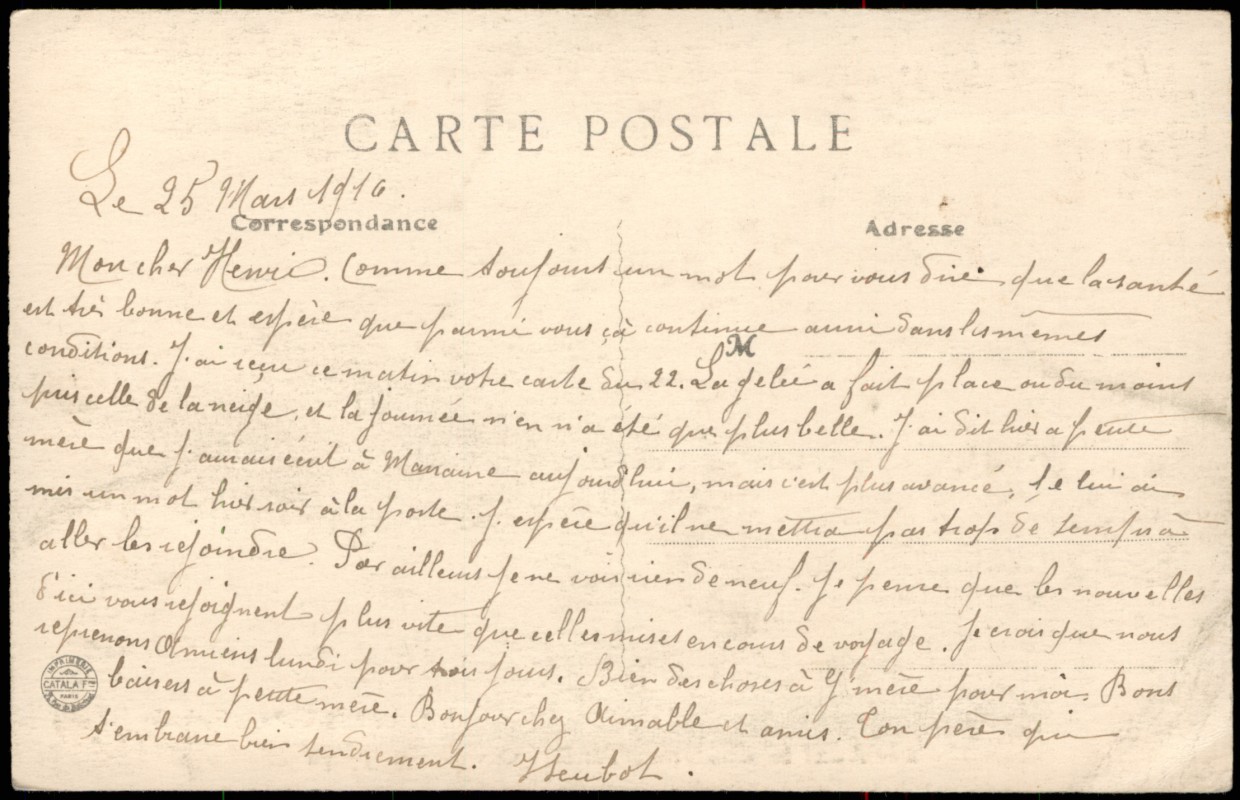 CARTE POSTALE
Le 25 Mars 1916.
Correspondance Adresse
Mon cher Henri. Comme toujours un mot pour vous dire que la santé
est très bonne et espère que parmi vous çà continue aussi dans les mêmes
M
conditions. J'ai reçu ce matin votre carte du 22. La gelée a fait place ou du moins
puis celle de la neige, et la journée n'en n'a été que plus belle. J'ai dit hier a petite
mère que j'aurais écrit à aujourd'hui, mais c'est plus avancé, je lui ai
mis un mot hier soir à la poste. J'espère qu'il ne mettra pas trop de temps à
aller les rejoindre. Par ailleurs je ne vois rien de neuf. Je pense que les nouvelles
d'ici vous rejoignent plus vite que celles mises en cours de voyage. Je crois que nous
reprenons Amiens lundi pour trois jours. Bien des choses à Gd mère pour moi. Bons
baisers à petite mère. Bonjour chez Aimable et amis. Ton père qui
t'embrasse bien tendrement.
IMPRIMERIE
CATALA Fres
PARIS